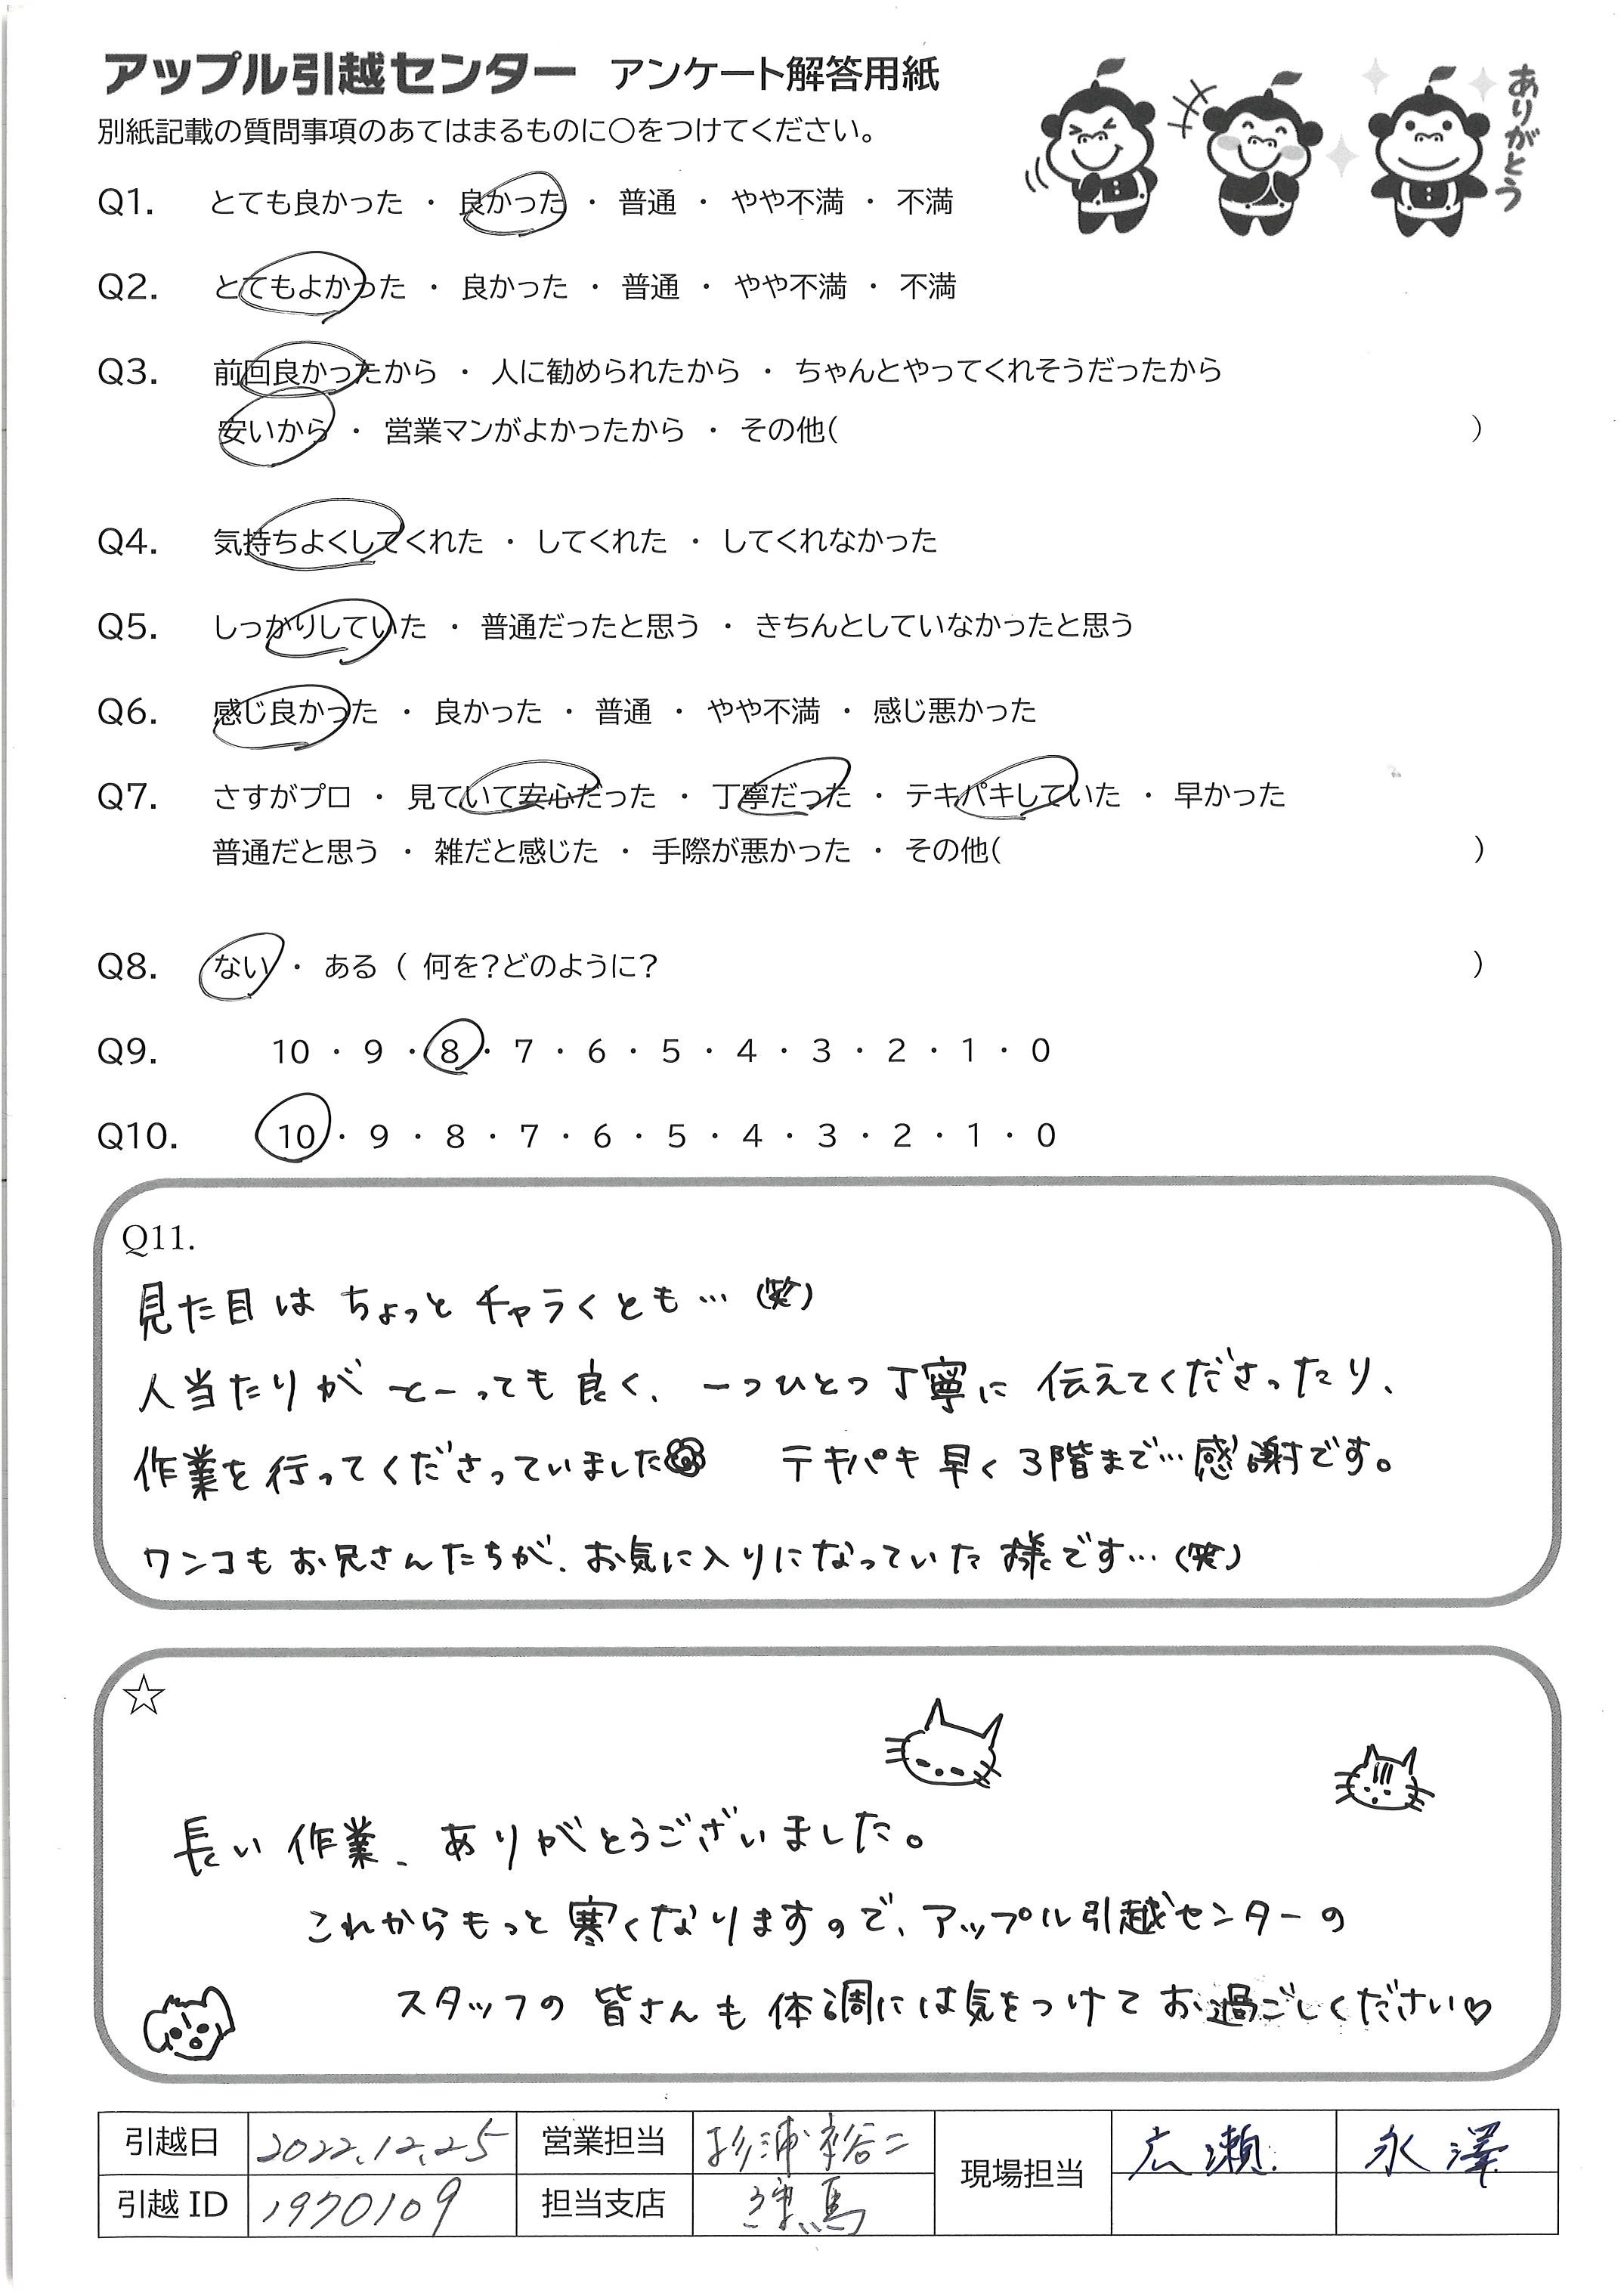 アップル引越センター アンケート解答用紙
ありがとう
別紙記載の質問事項のあてはまるものに〇をつけてください。
Q1. とても良かった ・ 良かった ・ 普通 ・ やや不満 ・ 不満
Q2. とてもよかった ・ 良かった ・ 普通 ・ やや不満 ・ 不満
Q3. 前回良かったから ・ 人に勧められたから ・ ちゃんとやってくれそうだったから
安いから ・ 営業マンがよかったから ・ その他( )
Q4. 気持ちよくしてくれた ・ してくれた ・ してくれなかった
Q5. しっかりしていた ・ 普通だったと思う ・ きちんとしていなかったと思う
Q6. 感じ良かった ・ 良かった ・ 普通 ・ やや不満 ・ 感じ悪かった
Q7. さすがプロ ・ 見ていて安心だった ・ 丁寧だった ・ テキパキしていた ・ 早かった
普通だと思う ・ 雑だと感じた ・ 手際が悪かった ・ その他( )
Q8. ない ・ ある ( 何を?どのように? )
Q9. 10 ・ 9 ・ 8 ・ 7 ・ 6 ・ 5 ・ 4 ・ 3 ・ 2 ・ 1 ・ 0
Q10. 10 ・ 9 ・ 8 ・ 7 ・ 6 ・ 5 ・ 4 ・ 3 ・ 2 ・ 1 ・ 0
Q11.
見た目は ちょっと チャラくとも… (笑)
人当たりが とーっても 良く、一つひとつ 丁寧に 伝えてくださったり、
作業を 行ってくださっていました テキパキ 早く 3階まで… 感謝です。
ワンコも お兄さんたちが、お気に入りになっていた 様です… (笑)
☆
長い 作業、ありがとうございました。
これからもっと 寒くなりますので、アップル引越センターの
スタッフの 皆さんも 体調には気をつけて お過ごしください♡
引越日 2022.12.25 営業担当 杉浦裕二 現場担当 広瀬 永澤
引越 ID 1970109 担当支店 練馬